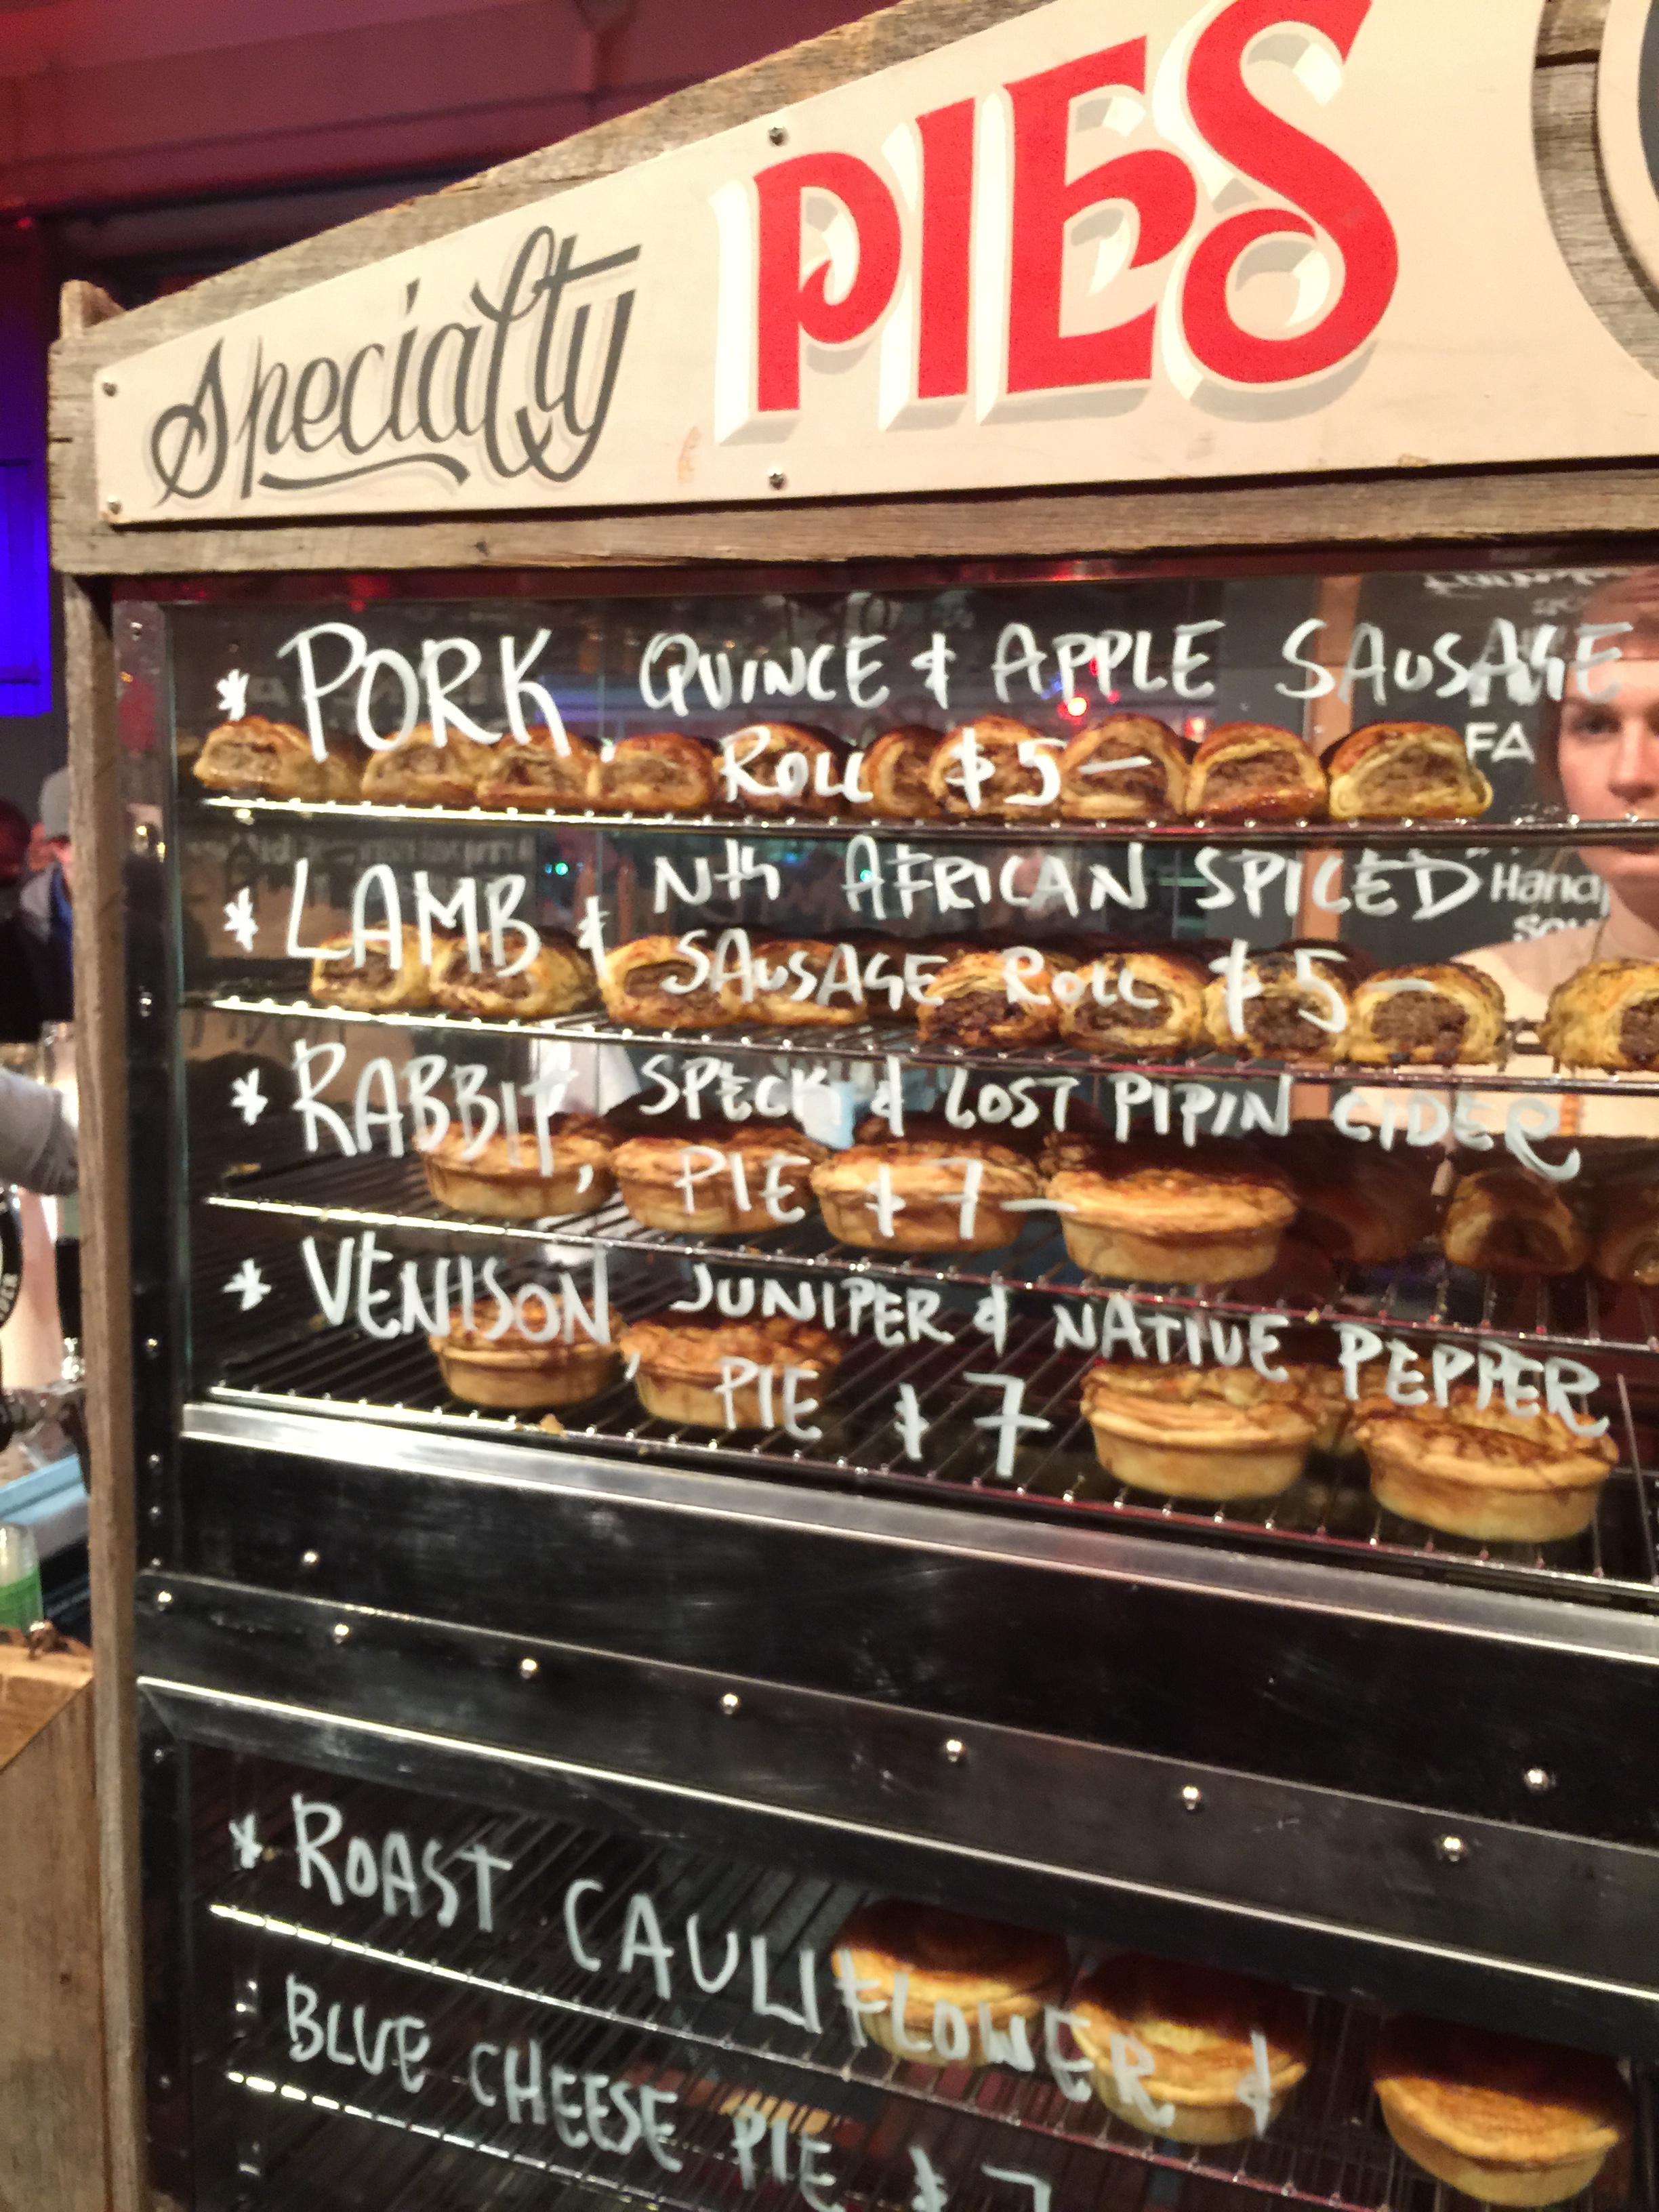 Specialty PIES
* PORK, QUINCE & APPLE SAUSAGE
ROLL $5—
FA
* LAMB & Nth AFRICAN SPICED
SAUSAGE ROLL $5—
Hand
Sou
* RABBIT, SPECK & LOST PIPIN CIDER
PIE $7—
* VENISON, JUNIPER & NATIVE PEPPER
PIE $7
* ROAST CAULIFLOWER &
BLUE CHEESE PIE $7